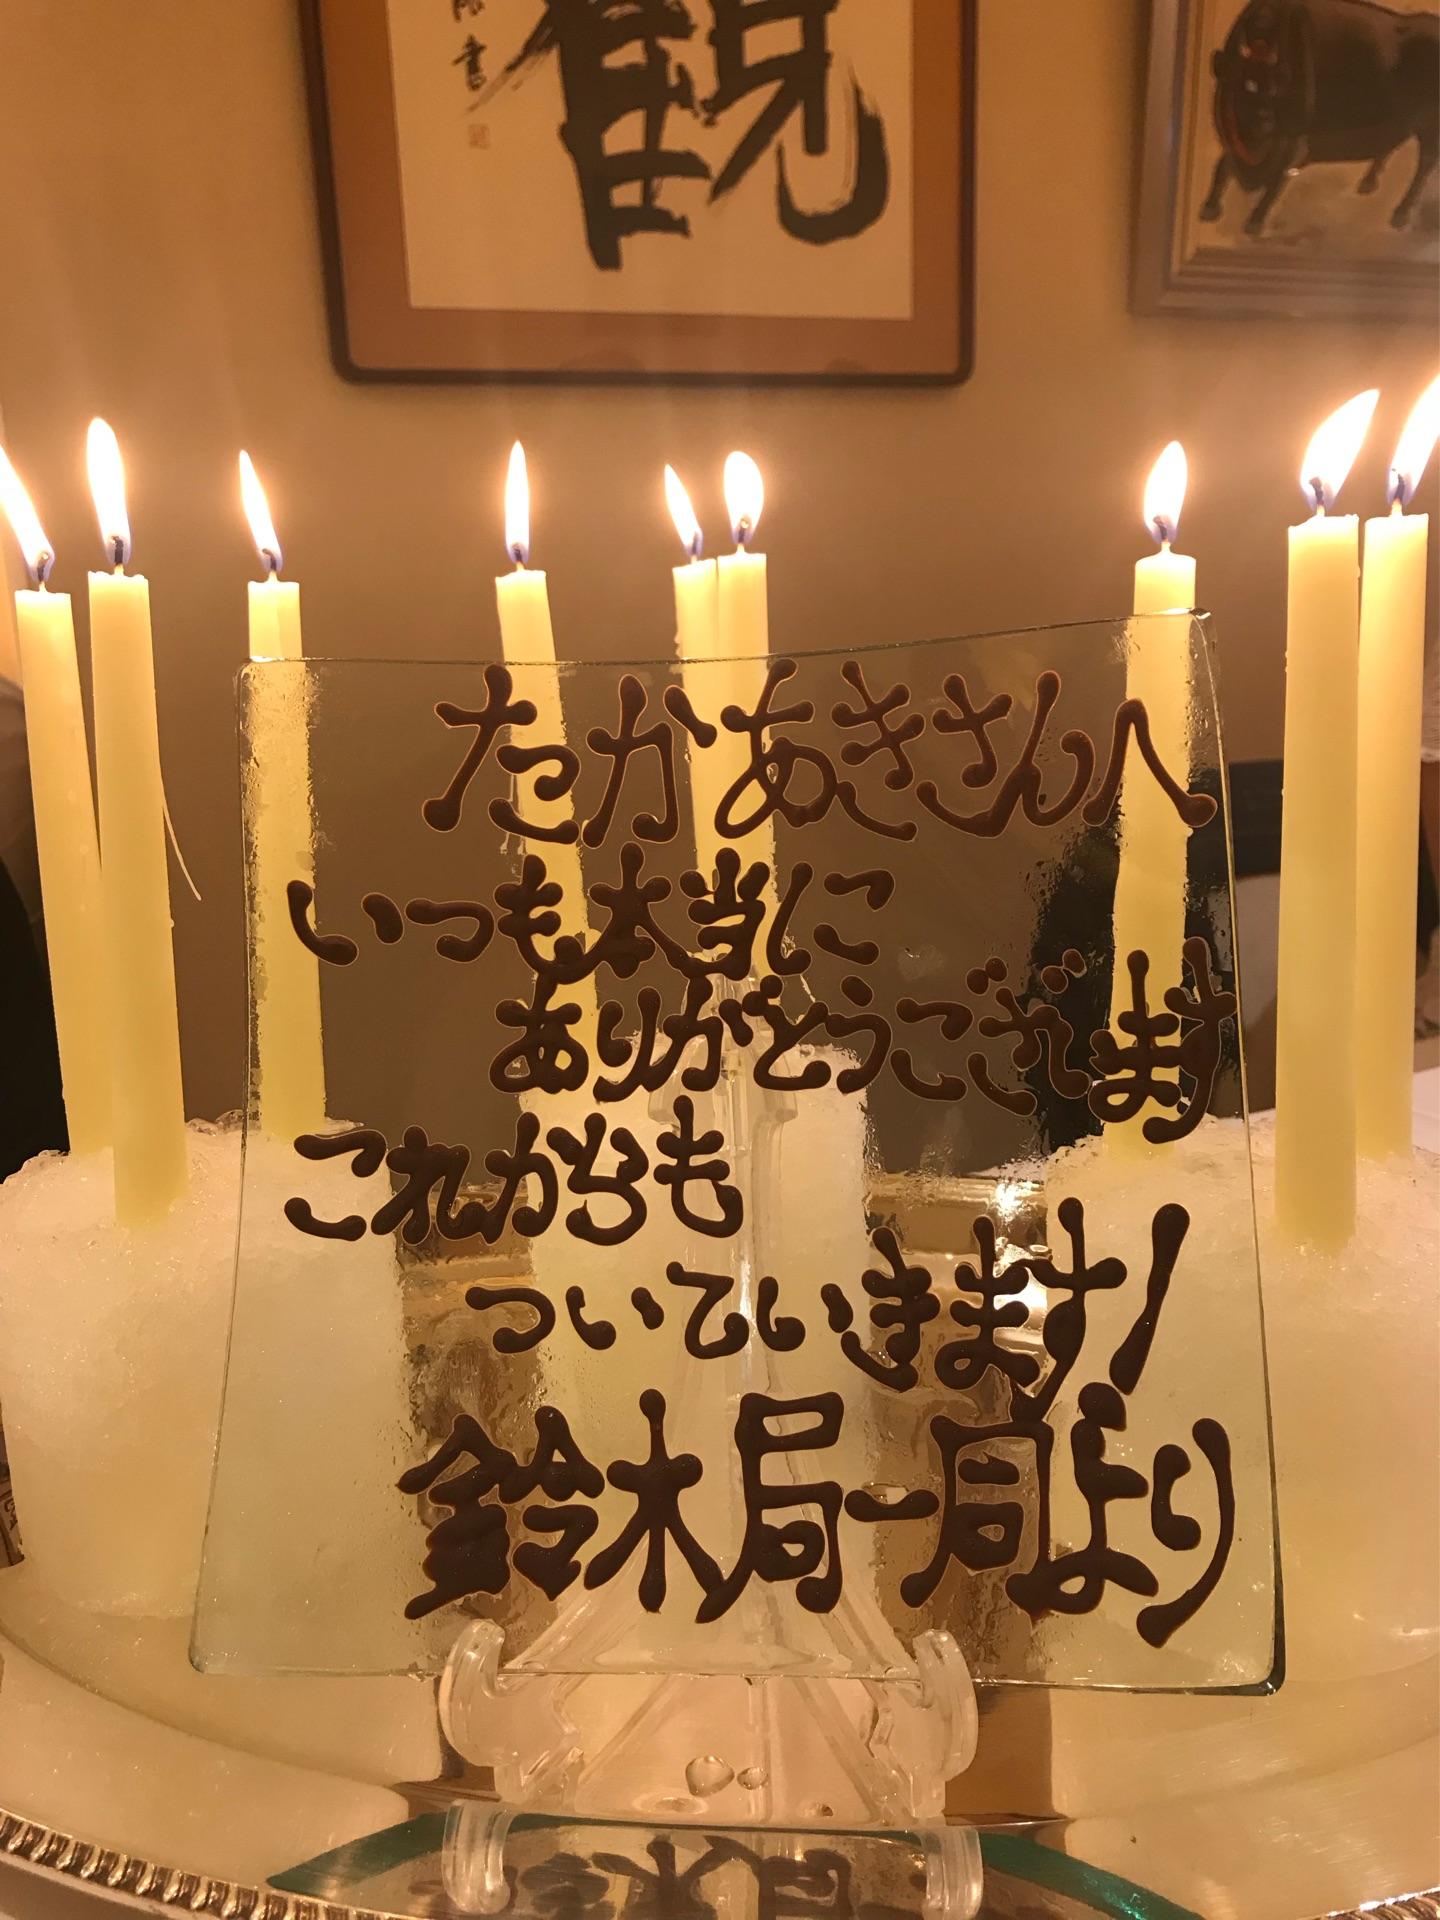 書
観
たかあきさんへ
いつも本当に
ありがとうございます
これからも
ついていきます!
鈴木局一同より